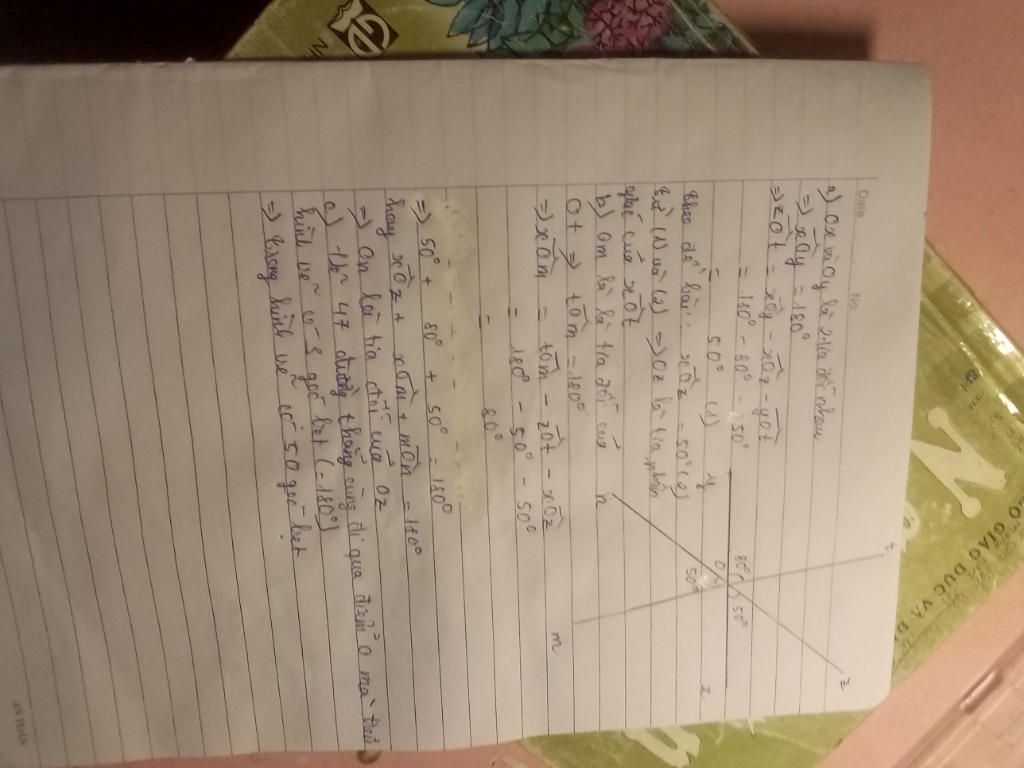 Date No.
a) Ox và Oy là 2 tia đối nhau
=> xOy = 180°
=> zOt = xOy - xOz - yOt
= 180° - 80° - 50°
= 50° (1)
theo đề bài: xOz = 50° (2)
Từ (1) và (2) => Oz là tia phân
giác của xOt
b) Om là là tia đối của
Ot => tOm = 180°
=> xOm = tOm - zOt - xOz
= 180° - 50° - 50°
= 80°
=> 50° + 80° + 50° = 180°
hay xOz + xOm + mOn = 180°
=> On là tia đối của Oz
a) Thẽ 47 đường thẳng cùng đi qua điểm O mà
hình vẽ có 3 góc bẹt (=180°)
=> trong hình vẽ có 50 góc bẹt
y
t
z
80°
50°
O
50°
n
m
x
AN THUẬN
GIÁO DỤC VÀ